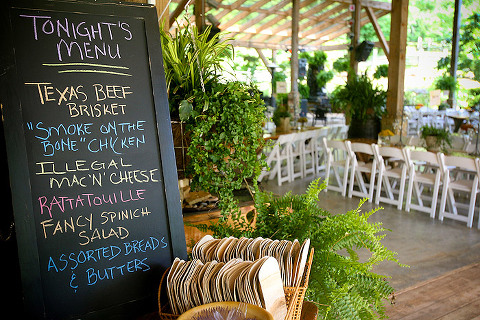 TONIGHT'S
MENU
TEXAS BEEF
BRISKET
"SMOKE ON THE
BONE" CHICKEN
ILLEGAL
MAC 'N' CHEESE
RATTATOUILLE
FANCY SPINICH
SALAD
ASSORTED BREADS
& BUTTERS